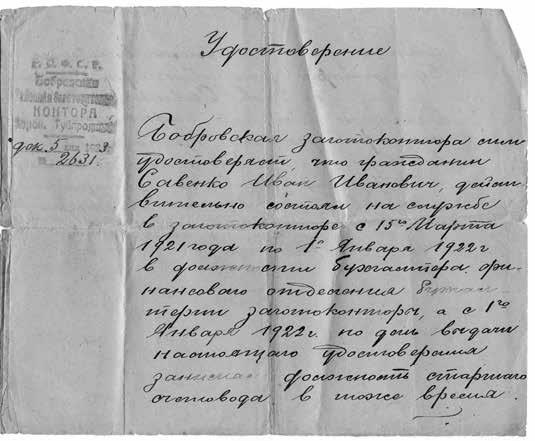 Удостоверение
Р. С. Ф. С. Р.
Бобровская
КОНТОРА
Ворон. Губпродкома
5
2631
Бобровская заготоконтора сим
удостоверяет что гражданин
Савенко Иван Иванович, дейст
вительно состоял на службе
в заготоконторе с 15го Марта
1921 года по 1е Января 1922 г
в должности бухгалтера фи-
нансоваго отделения бухгал
терии заготоконторы, а с 1го
Января 1922 г. по день выдачи
настоящаго удостоверения
занимал должность старшаго
счетовода в тоже время.